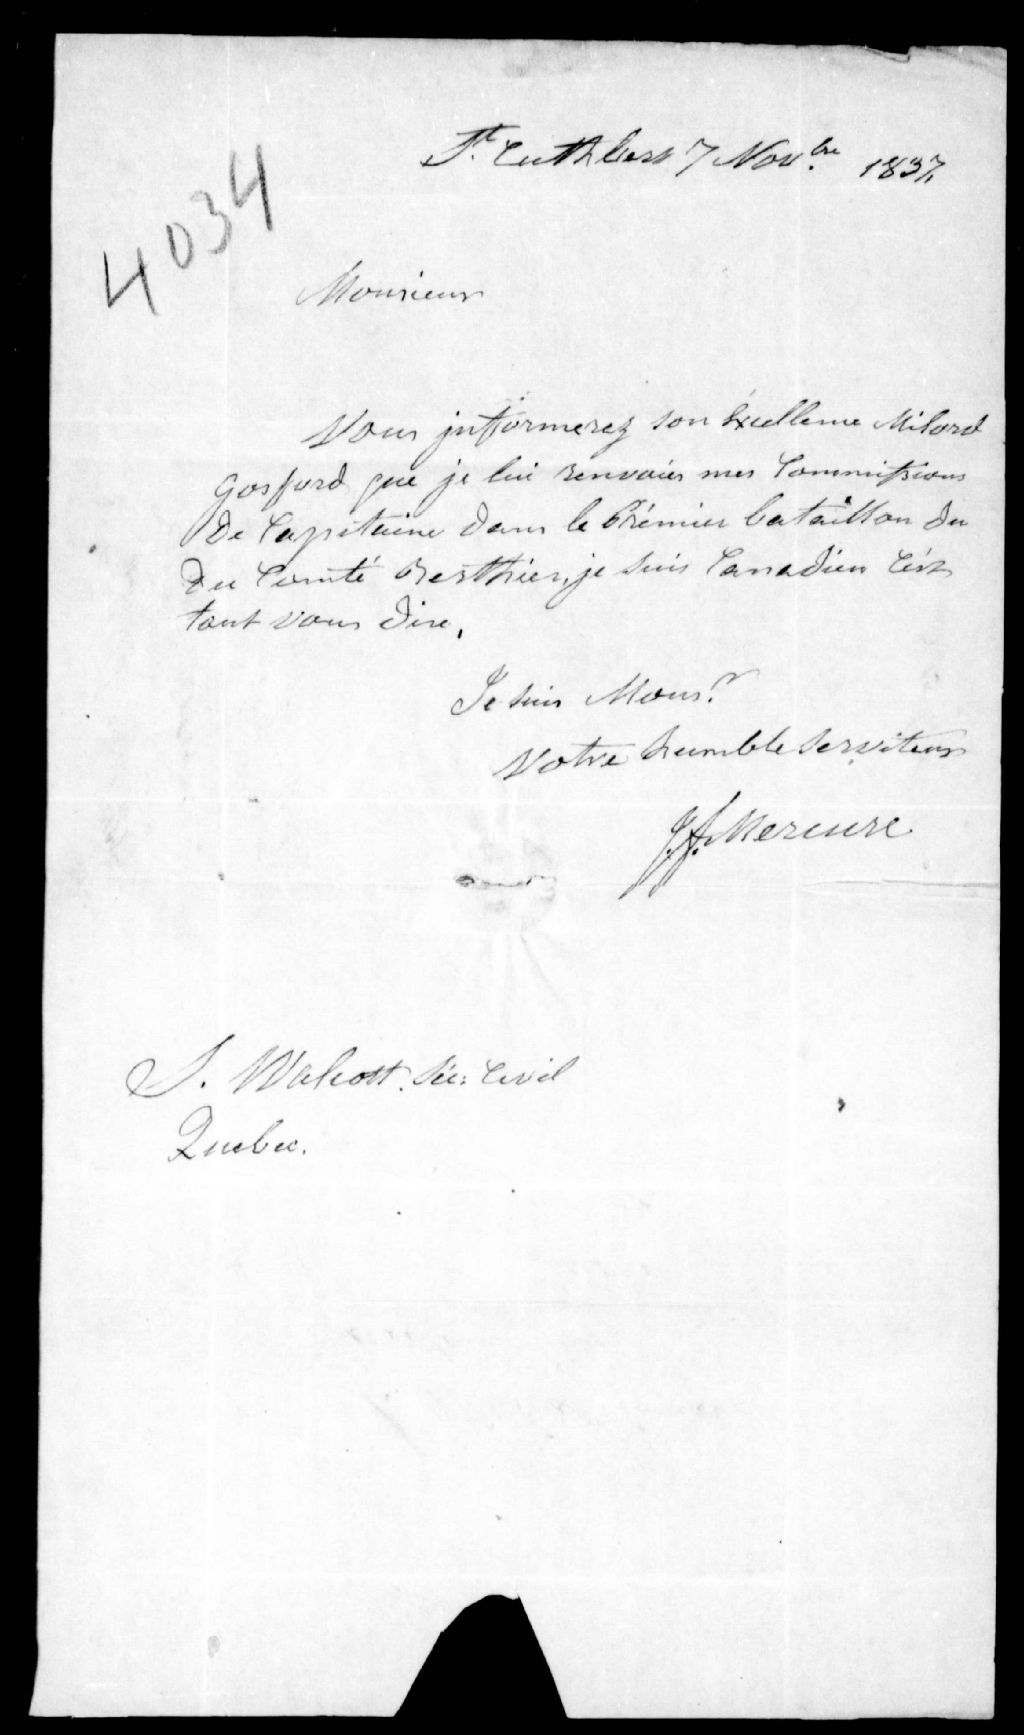 St. Cuthbert 7 Novbre. 1837.
4034
Monsieur
Vous jnfformerez son Éxcellence Milord
Gosford que je lui renvoies mes Commissions
De Capitaine dans le Prémier bataillon du
Du Comté Berthier, je suis Canadien C'ést
tout vous dire.
Je suis Monsr.
Votre humble Serviteur
J.F. Mercure
S. Walcott. Séc: Civil
Quebec.